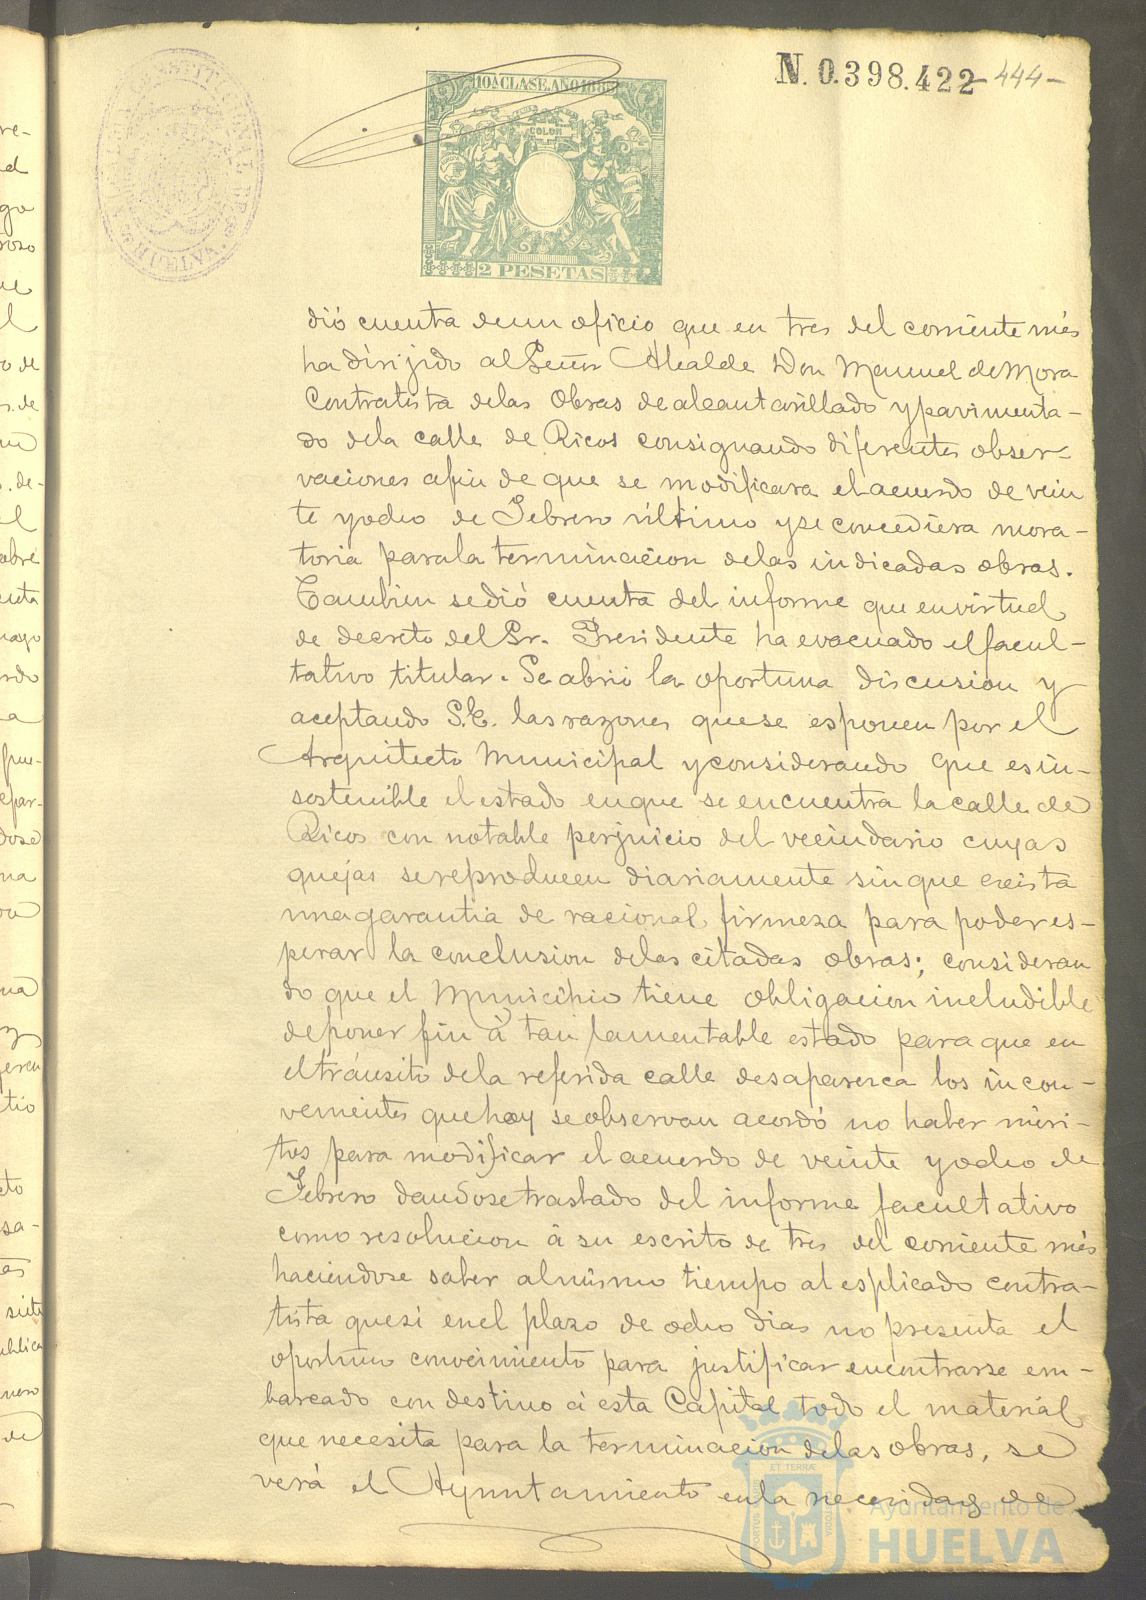 N. 0.398.422 -444-
10ª CLASE. AÑO 188
COLON
2 PESETAS
HUELVA
dió cuenta de un oficio que en tres del corriente més
ha dirijido al Señor Alcalde Don Manuel de Mora
Contratista de las Obras de alcantarillado y pavimenta-
do de la calle de Ricos consignando diferentes obser-
vaciones afin de que se modificara el acuerdo de vein
te y ocho de Febrero último y se concediera mora-
toria para la terminacion de las indicadas obras.
Tambien se dió cuenta del informe que en virtud
de decreto del Sr. Presidente ha evacuado el facul-
tativo titular. Se abrió la oportuna discusion y
aceptando S.E. las razones que se esponen por el
Arquitecto Municipal y considerando que es in-
sostenible el estado en que se encuentra la calle de
Ricos con notable perjuicio del vecindario cuyas
quejas se reproducen diariamente sin que exista
una garantia de racional firmeza para poder es-
perar la conclusion de las citadas obras; consideran
do que el Municipio tiene obligacion ineludible
de poner fin á tan lamentable estado para que en
el tránsito de la referida calle desaparezca los incon-
venientes que hoy se observan acordó no haber méri-
tos para modificar el acuerdo de veinte y ocho de
Febrero dandose traslado del informe facultativo
como resolucion á su escrito de tres del corriente més
haciendose saber al mismo tiempo al esplicado contra-
tista que si en el plazo de ocho dias no presenta el
oportuno conocimiento para justificar encontrarse em-
barcado con destino á esta Capital todo el material
que necesita para la terminacion de las obras, se
verá el Ayuntamiento en la necesidad de
Ayuntamiento de
HUELVA